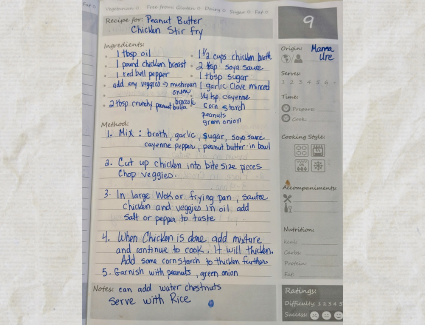 Recipe for: Peanut Butter
Chicken Stir fry
9
Ingredients:
• 1 tbsp oil
• 1 pound chicken breast
• 1 red bell pepper
• add any veggies → mushroom
onion
broccoli
• 2 tbsp crunchy peanut butter
• 1 1/2 cups chicken broth
• 2 tbsp soya sauce
• 1 tbsp sugar
1 garlic clove minced
1/4 tsp cayenne
corn starch
peanuts
green onion
Method:
1. Mix: broth, garlic, sugar, soya sauce
cayenne pepper, peanut butter in bowl
2. Cut up chicken into bite size pieces
Chop veggies.
3. In large Wok or frying pan, sautee
chicken and veggies in oil add
salt or pepper to taste
4. When Chicken is done add mixture
and continue to cook. It will thicken.
Add some cornstarch to thicken further
5. Garnish with peanuts, green onion
Notes: can add water chestnuts
Serve with Rice
Origin: Mama
Ure
Serves:
1 2 3 4 5 6
Time:
Prepare
Cook
Cooking Style:
Accompaniments:
Nutrition:
Carbs
Protein
Fat
Ratings:
Difficulty: 1 2 3 4 5
Success: